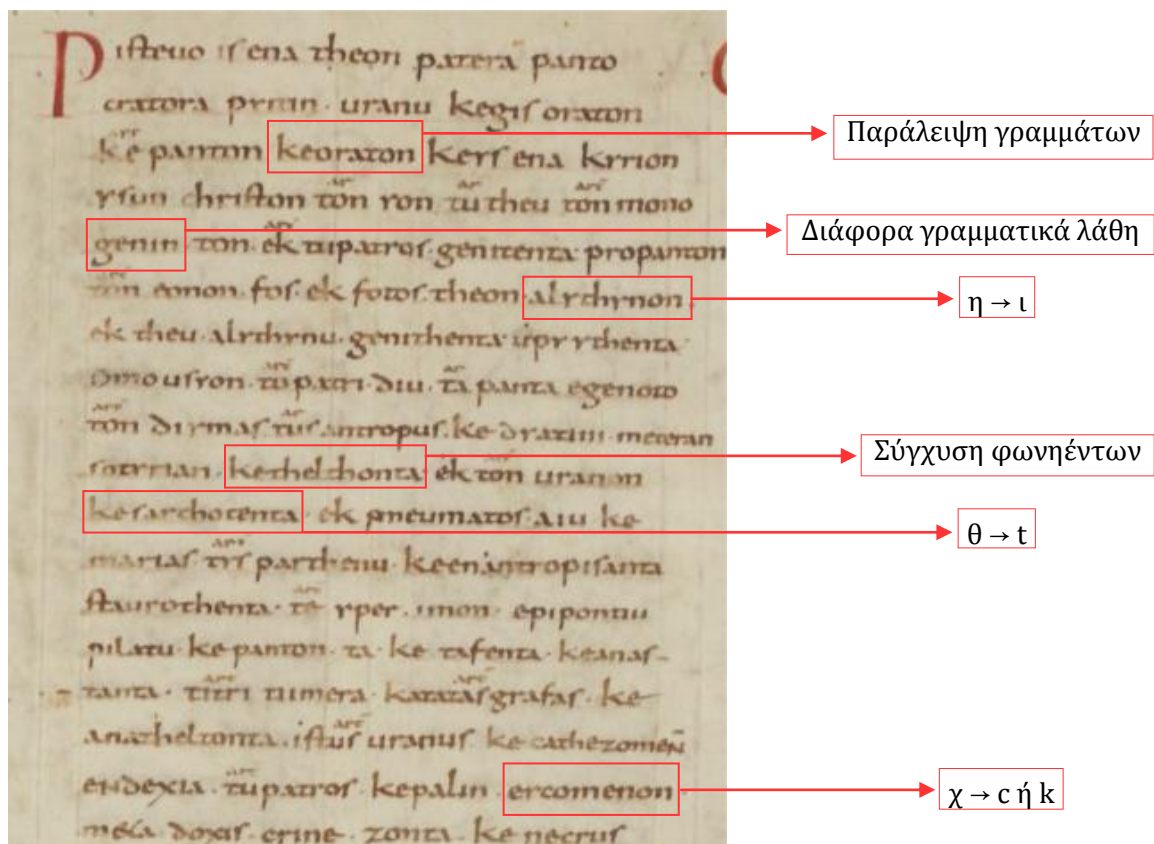 Pisteuo is ena theon patera panto
cratora pyitin · uranu kegis oraton
ke panton keoraton keys ena kyrion
ysun christon ton yon tu theu ton mono
genin · ton ek tupatros · genitenta · propanton
ton eonon · fos · ek fotos · theon · alythynon
ek theu · alythynu · genithenta upyythenta
omousyon · tu patri · diu · ta panta egeneto
ton diymas tus antropus · ke dyatin meteran
sotyrian · kethelthonta ek ton uranon
kesarthotenta · ek pneumatos aiu ke
marias tys parthenu · keenantropisanta
staurothenta · te yper · imon · epipontiu
pilatu · ke panton · ta · ke tafenta · keanas-
tanta · titri tumera · katatasgrafas · ke
anatheltonta · istus uranus ke cathezomen
endexia · tu patros kepalin ercomenon
meta doxis · crine · zonta · ke necrus
Παράλειψη γραμμάτων
Διάφορα γραμματικά λάθη
η → ι
Σύγχυση φωνηέντων
θ → t
χ → c ή k